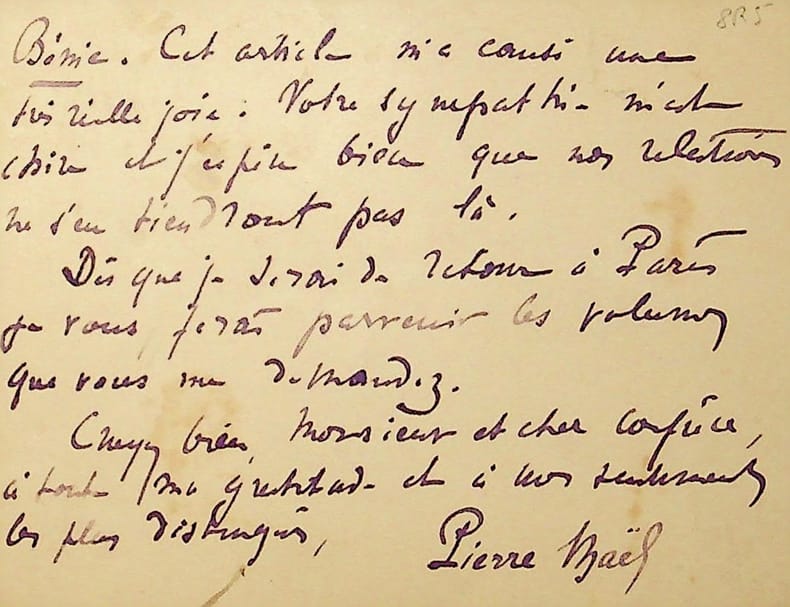 8R5
Bônie. Cet article m'a causé une
très réelle joie. Votre sympathie m'est
chère et j'espère bien que nos relations
ne s'en tiendront pas là.
Dès que je serai de retour à Paris
je vous ferai parvenir les volumes
que vous me demandez.
Croyez bien, Monsieur et cher confrère,
à toute ma gratitude et à mes sentiments
les plus distingués,
Pierre Maël